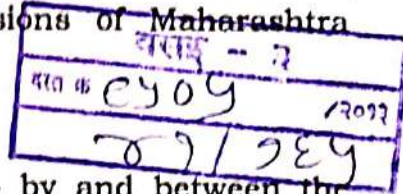 sions of Maharashtra
वसई - २
दस्त क्र ९५०५ /२०१२
४१ / १६५
by and between the